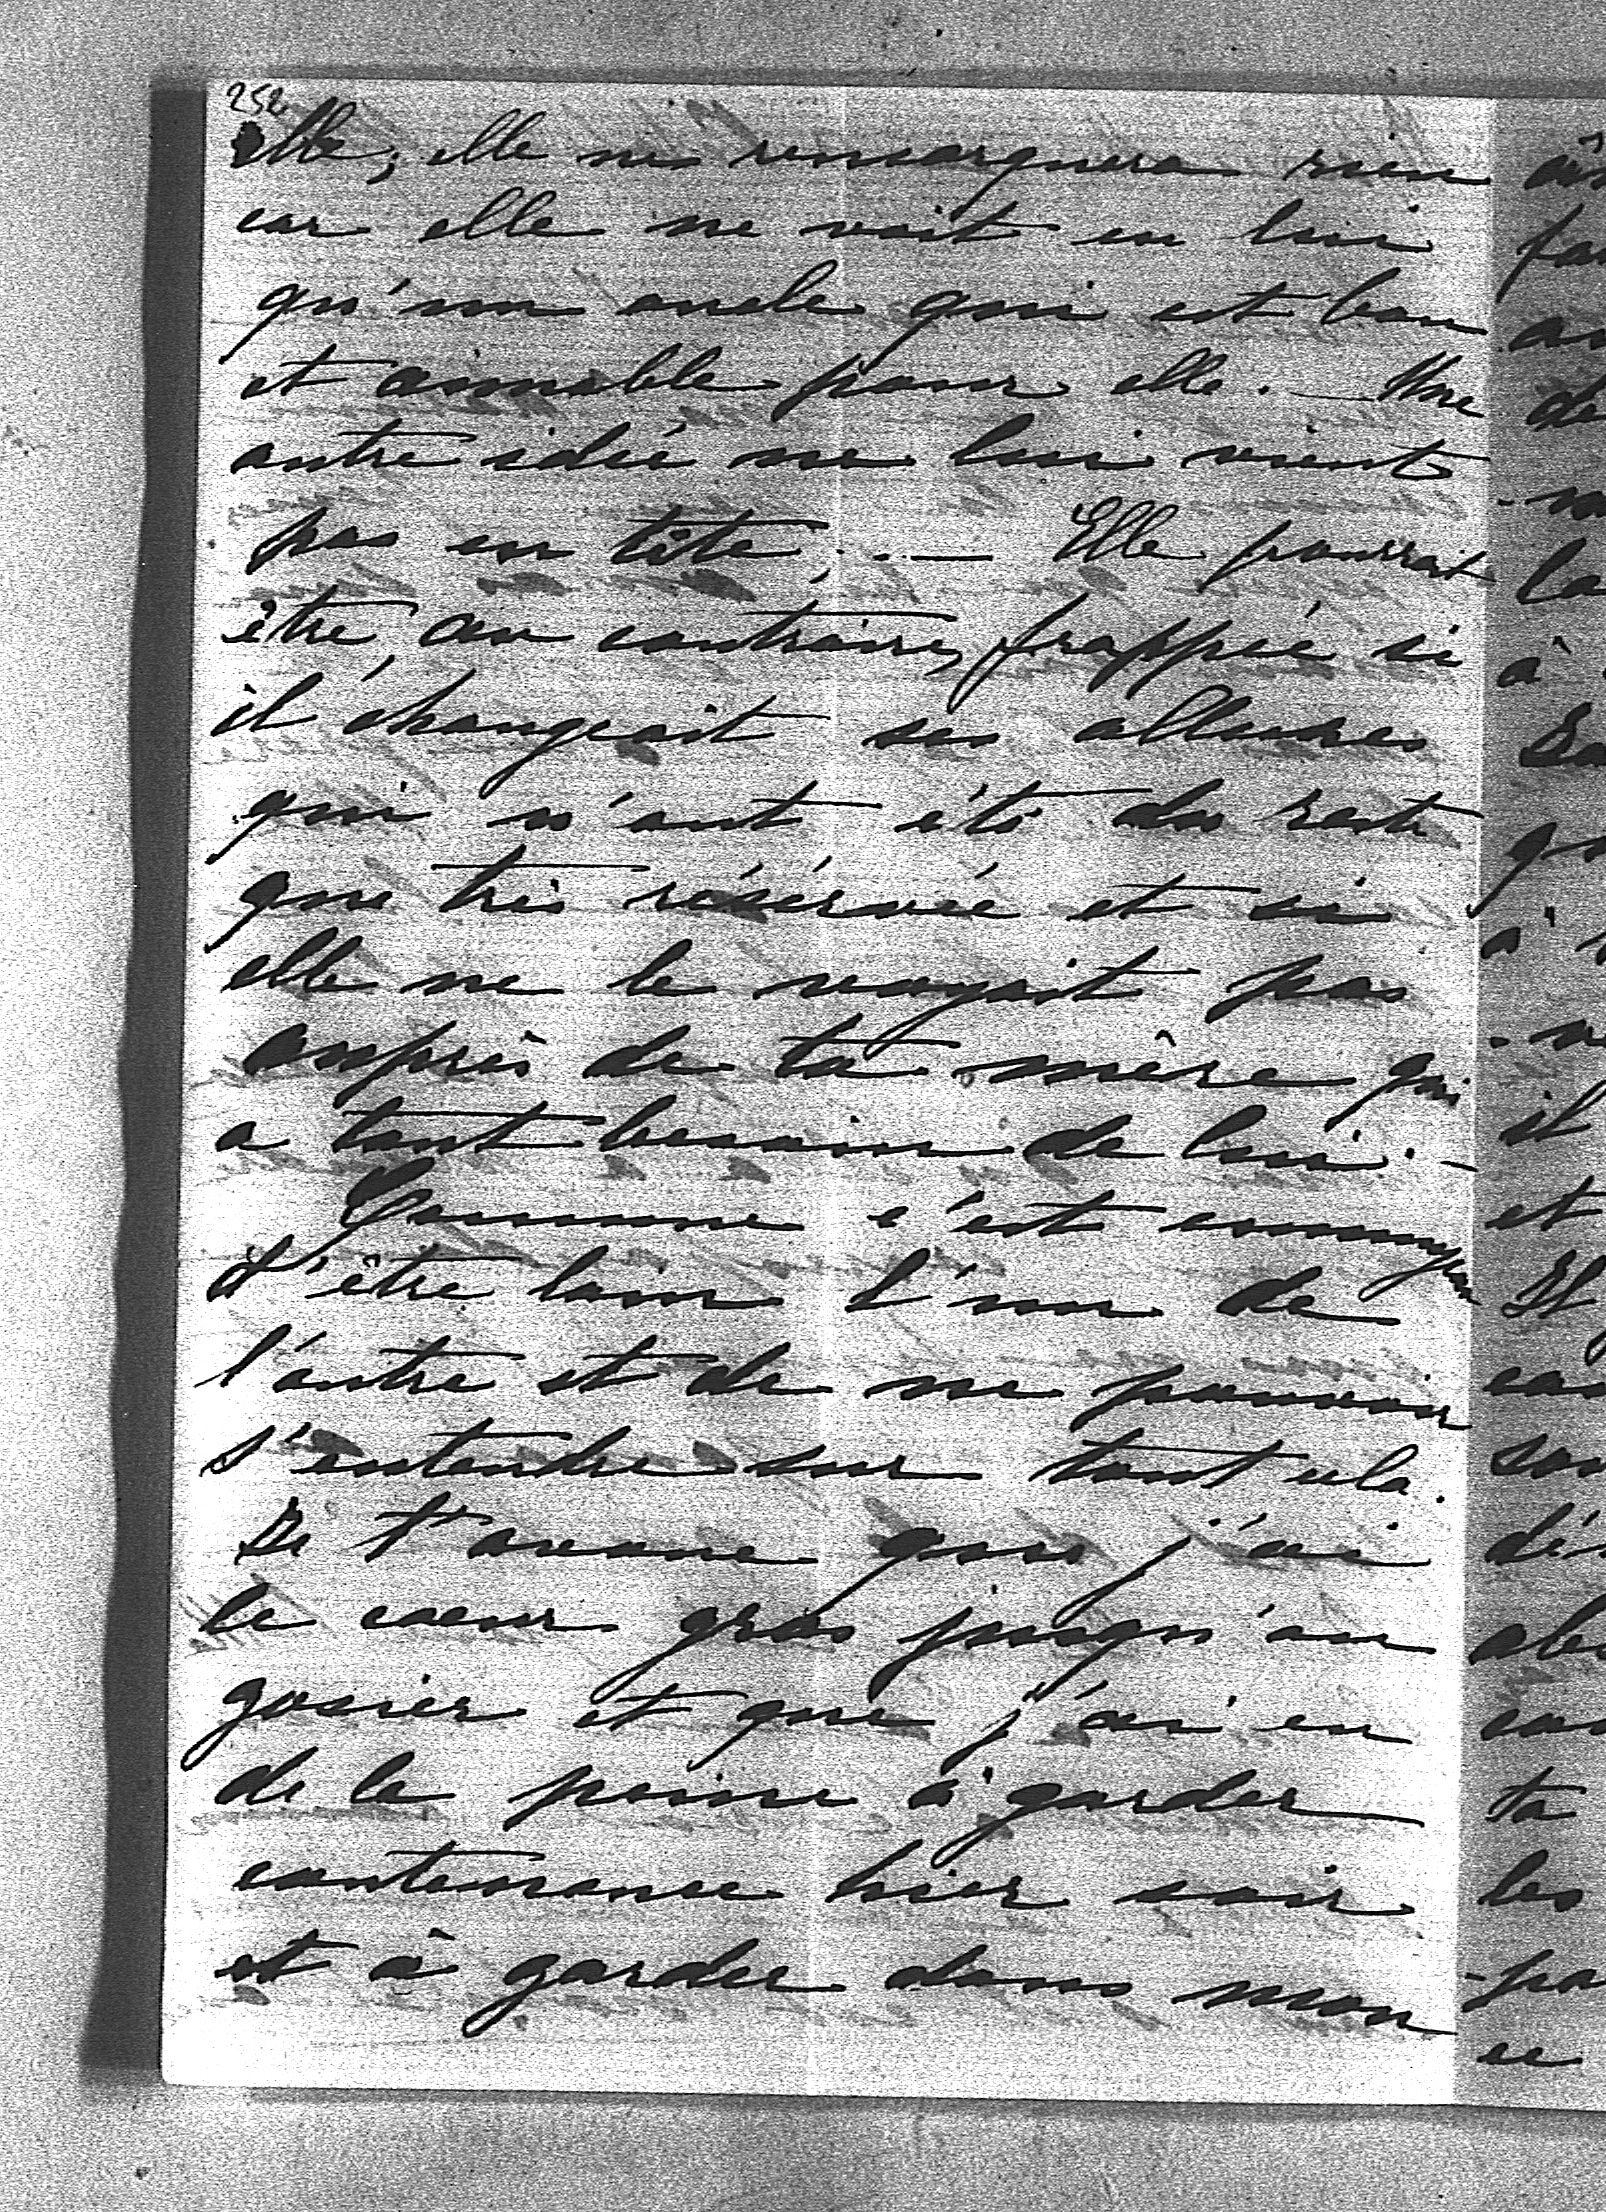 252
elle; elle ne remarquera rien
car elle ne voit en lui
qu'un oncle qui est bon
et aimable pour elle. — Une
autre idée ne lui vient
pas en tête... — Elle pourrait
être, au contraire, frappée si
il changeait ses allures
qui n'ont été du reste
que très réservée et si
elle ne le voyait pas
auprès de ta mère qui
a tant besoin de lui. —
Comme c'est ennuyeux
d'être loin l'un de
l'autre et de ne pouvoir
s'entendre sur tout cela.
Je t'avoue que j'ai
le coeur gros jusqu'au
gosier et que j'ai eu
de la peine à garder
contenance hier soir
et à garder dans mon